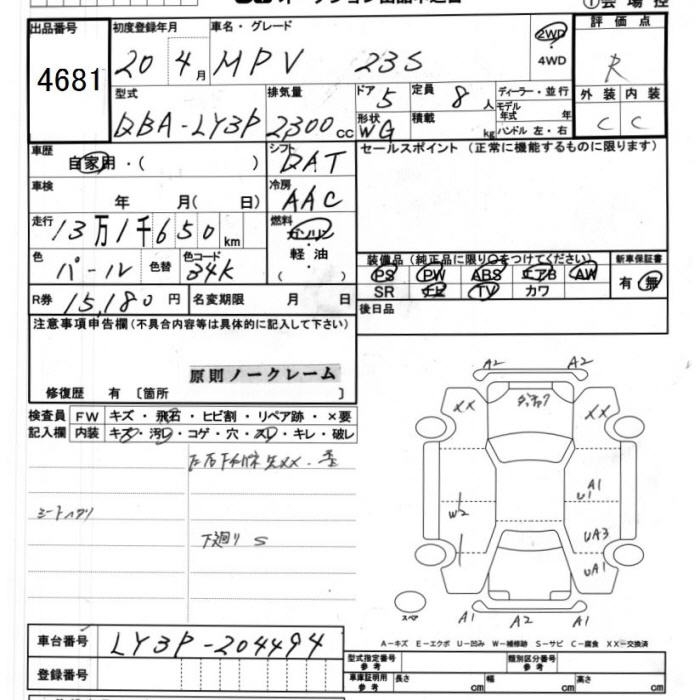 出品番号 初度登録年月 車名・グレード 2WD 評価点
4681 20 4月 MPV 23S 4WD R
型式 排気量 ドア 5 定員 8人 ディーラー・並行 外装 内装
DBA-LY3P 2300cc 形状 WG 積載 kg モデル年式 年 ハンドル 左・右 C C
車歴 自家用・( ) シフト DAT セールスポイント(正常に機能するものに限ります)
車検 年 月( 日) 冷房 AAC
走行 13万1千650km 燃料 ガソリン・軽油・( )
色 パール 色替 色コード 34K 装備品(純正品に限り○をつけてください) 新車保証書
PS PW ABS エアB AW 有・無
R券 15,180円 名変期限 月 日 SR ナビ TV カワ
注意事項申告欄(不具合内容等は具体的に記入して下さい) 後日品
原則ノークレーム
修復歴 有〔箇所 〕
検査員 FW キズ・飛石・ヒビ割・リペア跡・×要
記入欄 内装 キズ・汚レ・コゲ・穴・スレ・キレ・破レ
シートハタリ
下廻り S
A2 A2
XX XX
A1
U1
W2
UA3
UA1
スペア
A1 A2 A1
A-キズ E-エクボ U-凹み W-補修跡 S-サビ C-腐食 XX-交換済
車台番号 LY3P-204494
型式指定番号 参考 類別区分番号 参考
登録番号 車庫証明用 参考 長さ cm 幅 cm 高さ cm